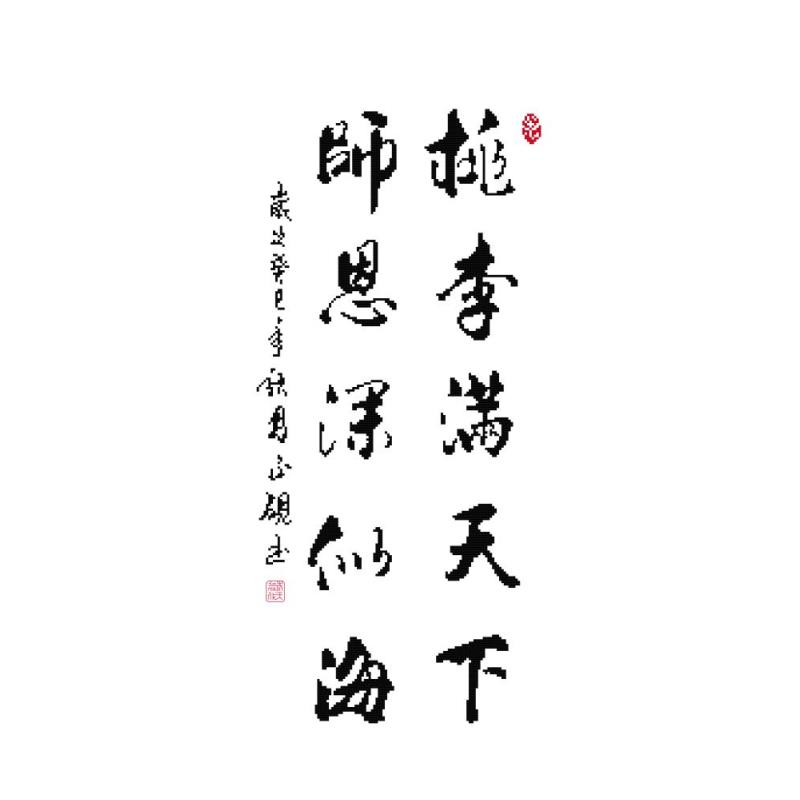 桃李满天下
師恩深似海
歲次癸巳年秋月正硯書